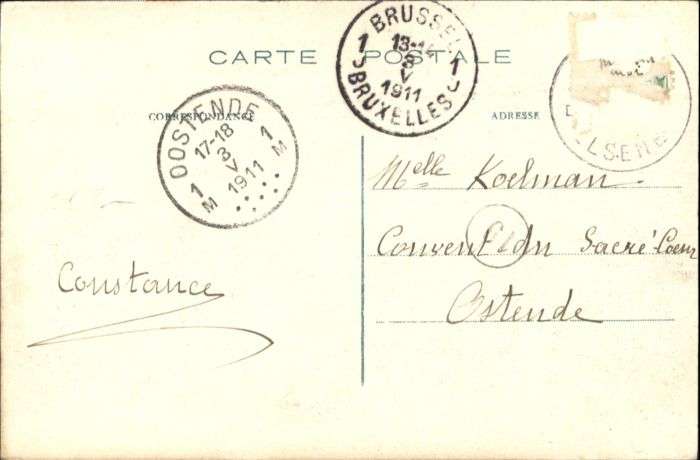 CARTE POSTALE
CORRESPONDANCE
ADRESSE
BRUSSEL
1 J 1 J
13-14
3
V
1911
BRUXELLES
OOSTENDE
17-18
3
V
1911
1 M 1 M
LSENE
Melle Koelman.
Sacré-Coeur
Ostende
Constance